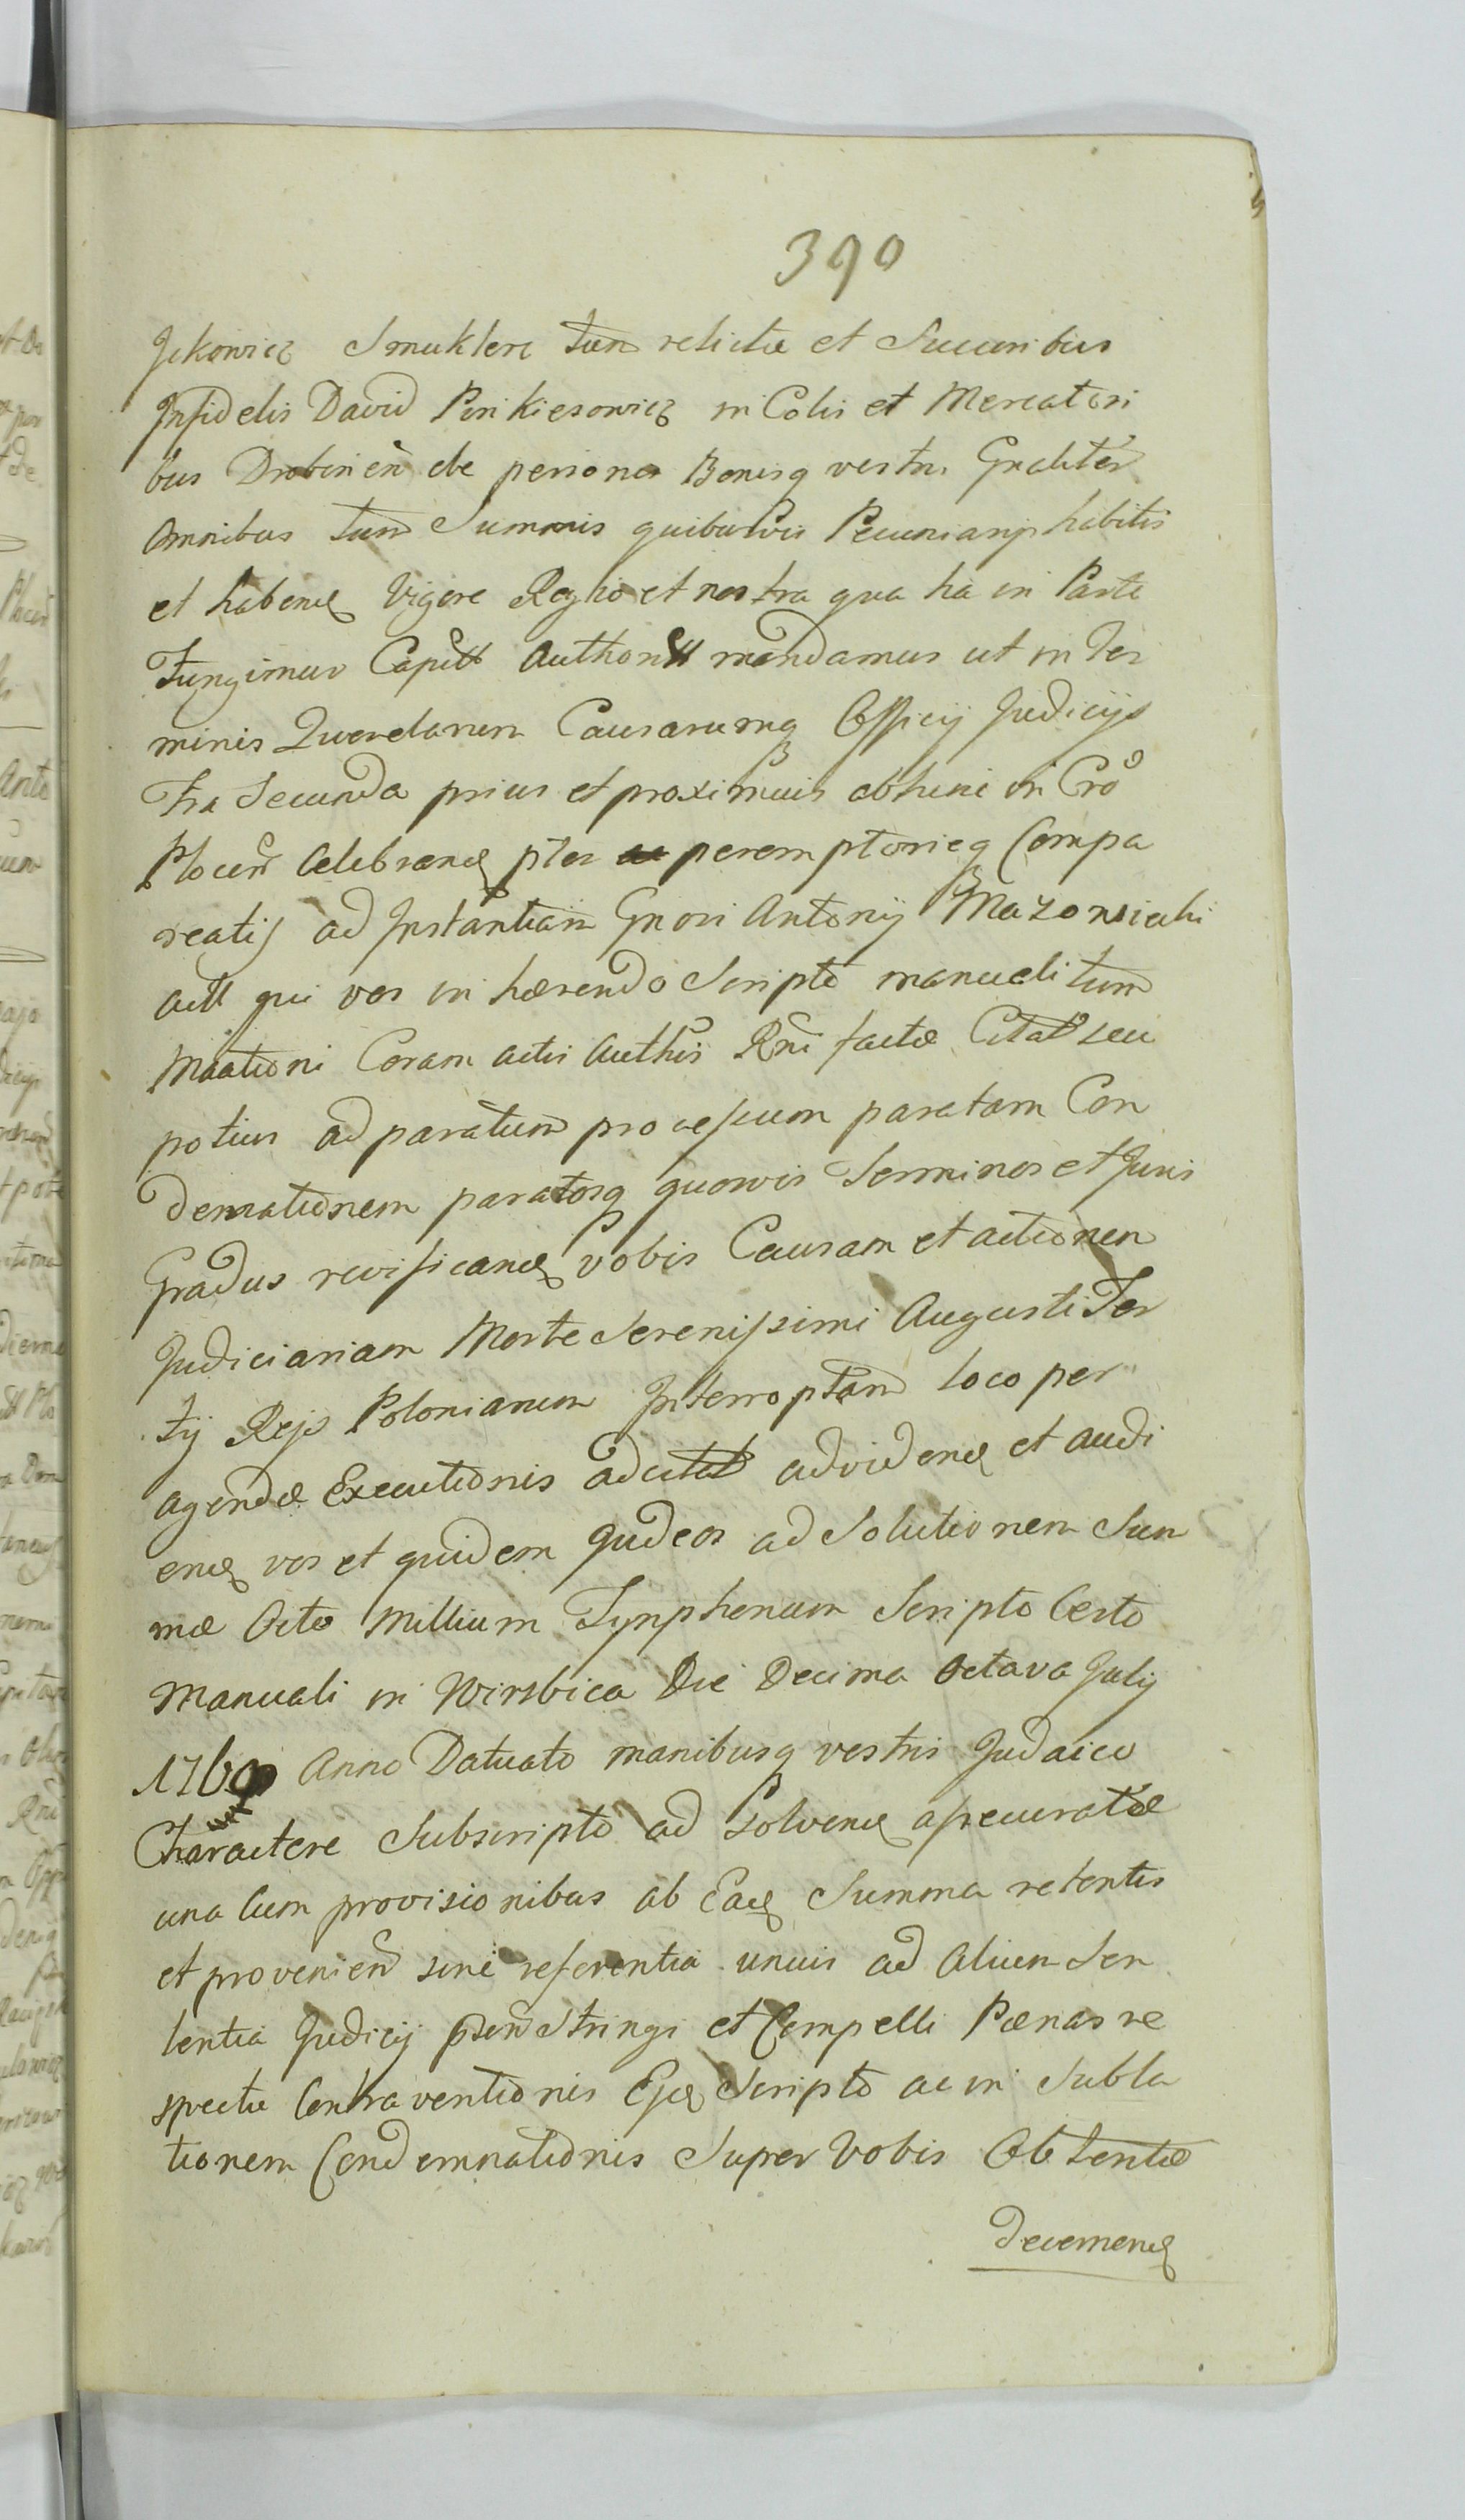 390
Jckowicz Smuklerc tum relictæ et Succoribus
Infidelis David Pinkiesowicz in Colis et Mercatori
bus Drobinen de personis Bonisq vestris Gnaliter
Omnibus tum Summis quibusvis Pecuniarys habitis
et habend Vigore Regho et nostra qua ha in Parte
Fungimur Captt Authortt mandamus ut in Ter
minis Querelarum Causarumq Officij Judicijs
Fra Secunda prius et proximius abhinc in Cro
Plocen Celebrand pter peremptorieq Compa
reatis ad Instantiam Gnosi Antonij Mazowiecki
act qui vos in hærendo Scripto manuali tum
Maationi Coram actis Authis Rni factæ Citat seu
potius ad paratum processum paratam Con
demnationem paratosq quosvis Terminos et Juris
Gradus revificand vobis Causam et actionem
Judiciariam Morte Serenissimi Augusti Ter
tij Rejs Poloniarum Interroptam loco per
agendæ Executionis adcitat ad vidend et audi
end vos et quidem Judeos ad Solutionem Sum
mæ Octo Millium Tynphorum Scripto Certo
Manuali in Wirzbica Die Decima Octava Julij
1760 Anno Datuato manibusq vestris Judaico
Charactere Subscripto ad Solvend assecuratæ
una Cum provisionibus ab Ead Summa retentis
et provenien sine referentia unius ad Alium Sen
tentia Judicij psen Stringi et Compelli Pænas re
spectu Contraventionis Ejd Scripto ac in Subla
tionem Condemnationis Super Vobis Obtentæ
decernend